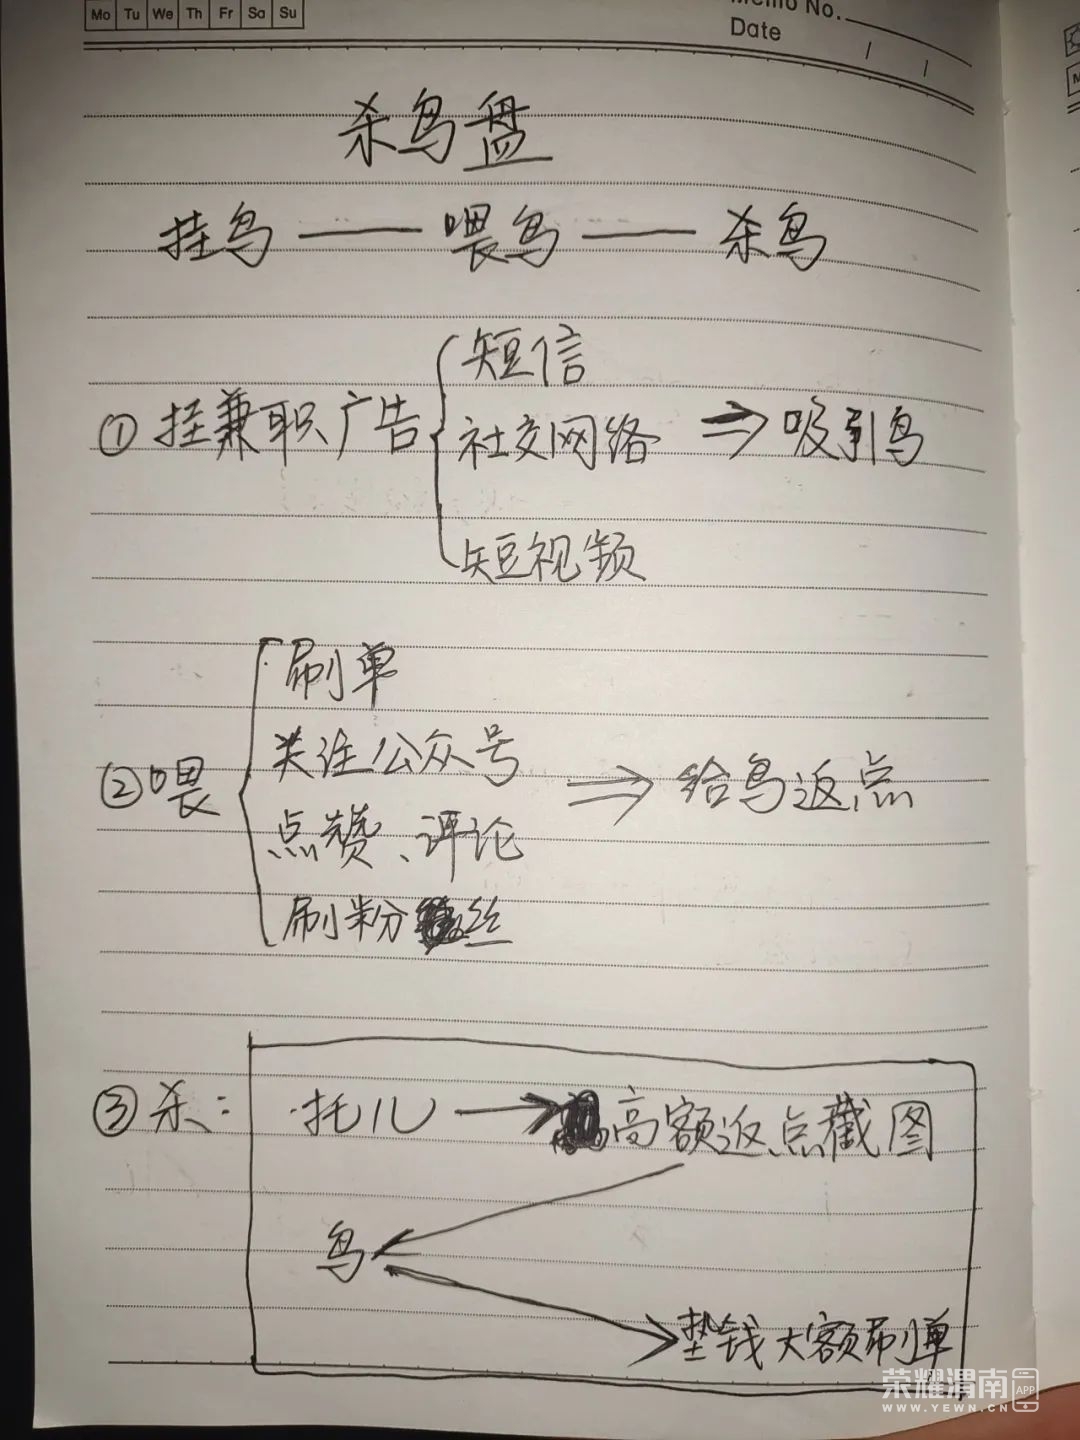 Mo Tu We Th Fr Sa Su
Memo No.
Date / /
杀鸟盘
挂鸟 —— 喂鸟 —— 杀鸟
短信
①挂兼职广告 社交网络 ⇒ 吸引鸟
短视频
刷单
关注公众号
②喂 ⇒ 给鸟返点
点赞、评论
刷粉丝
③杀: 托儿 → 高额返点截图
鸟
垫钱大额刷单
荣耀渭南 APP
WWW.YEWN.CN